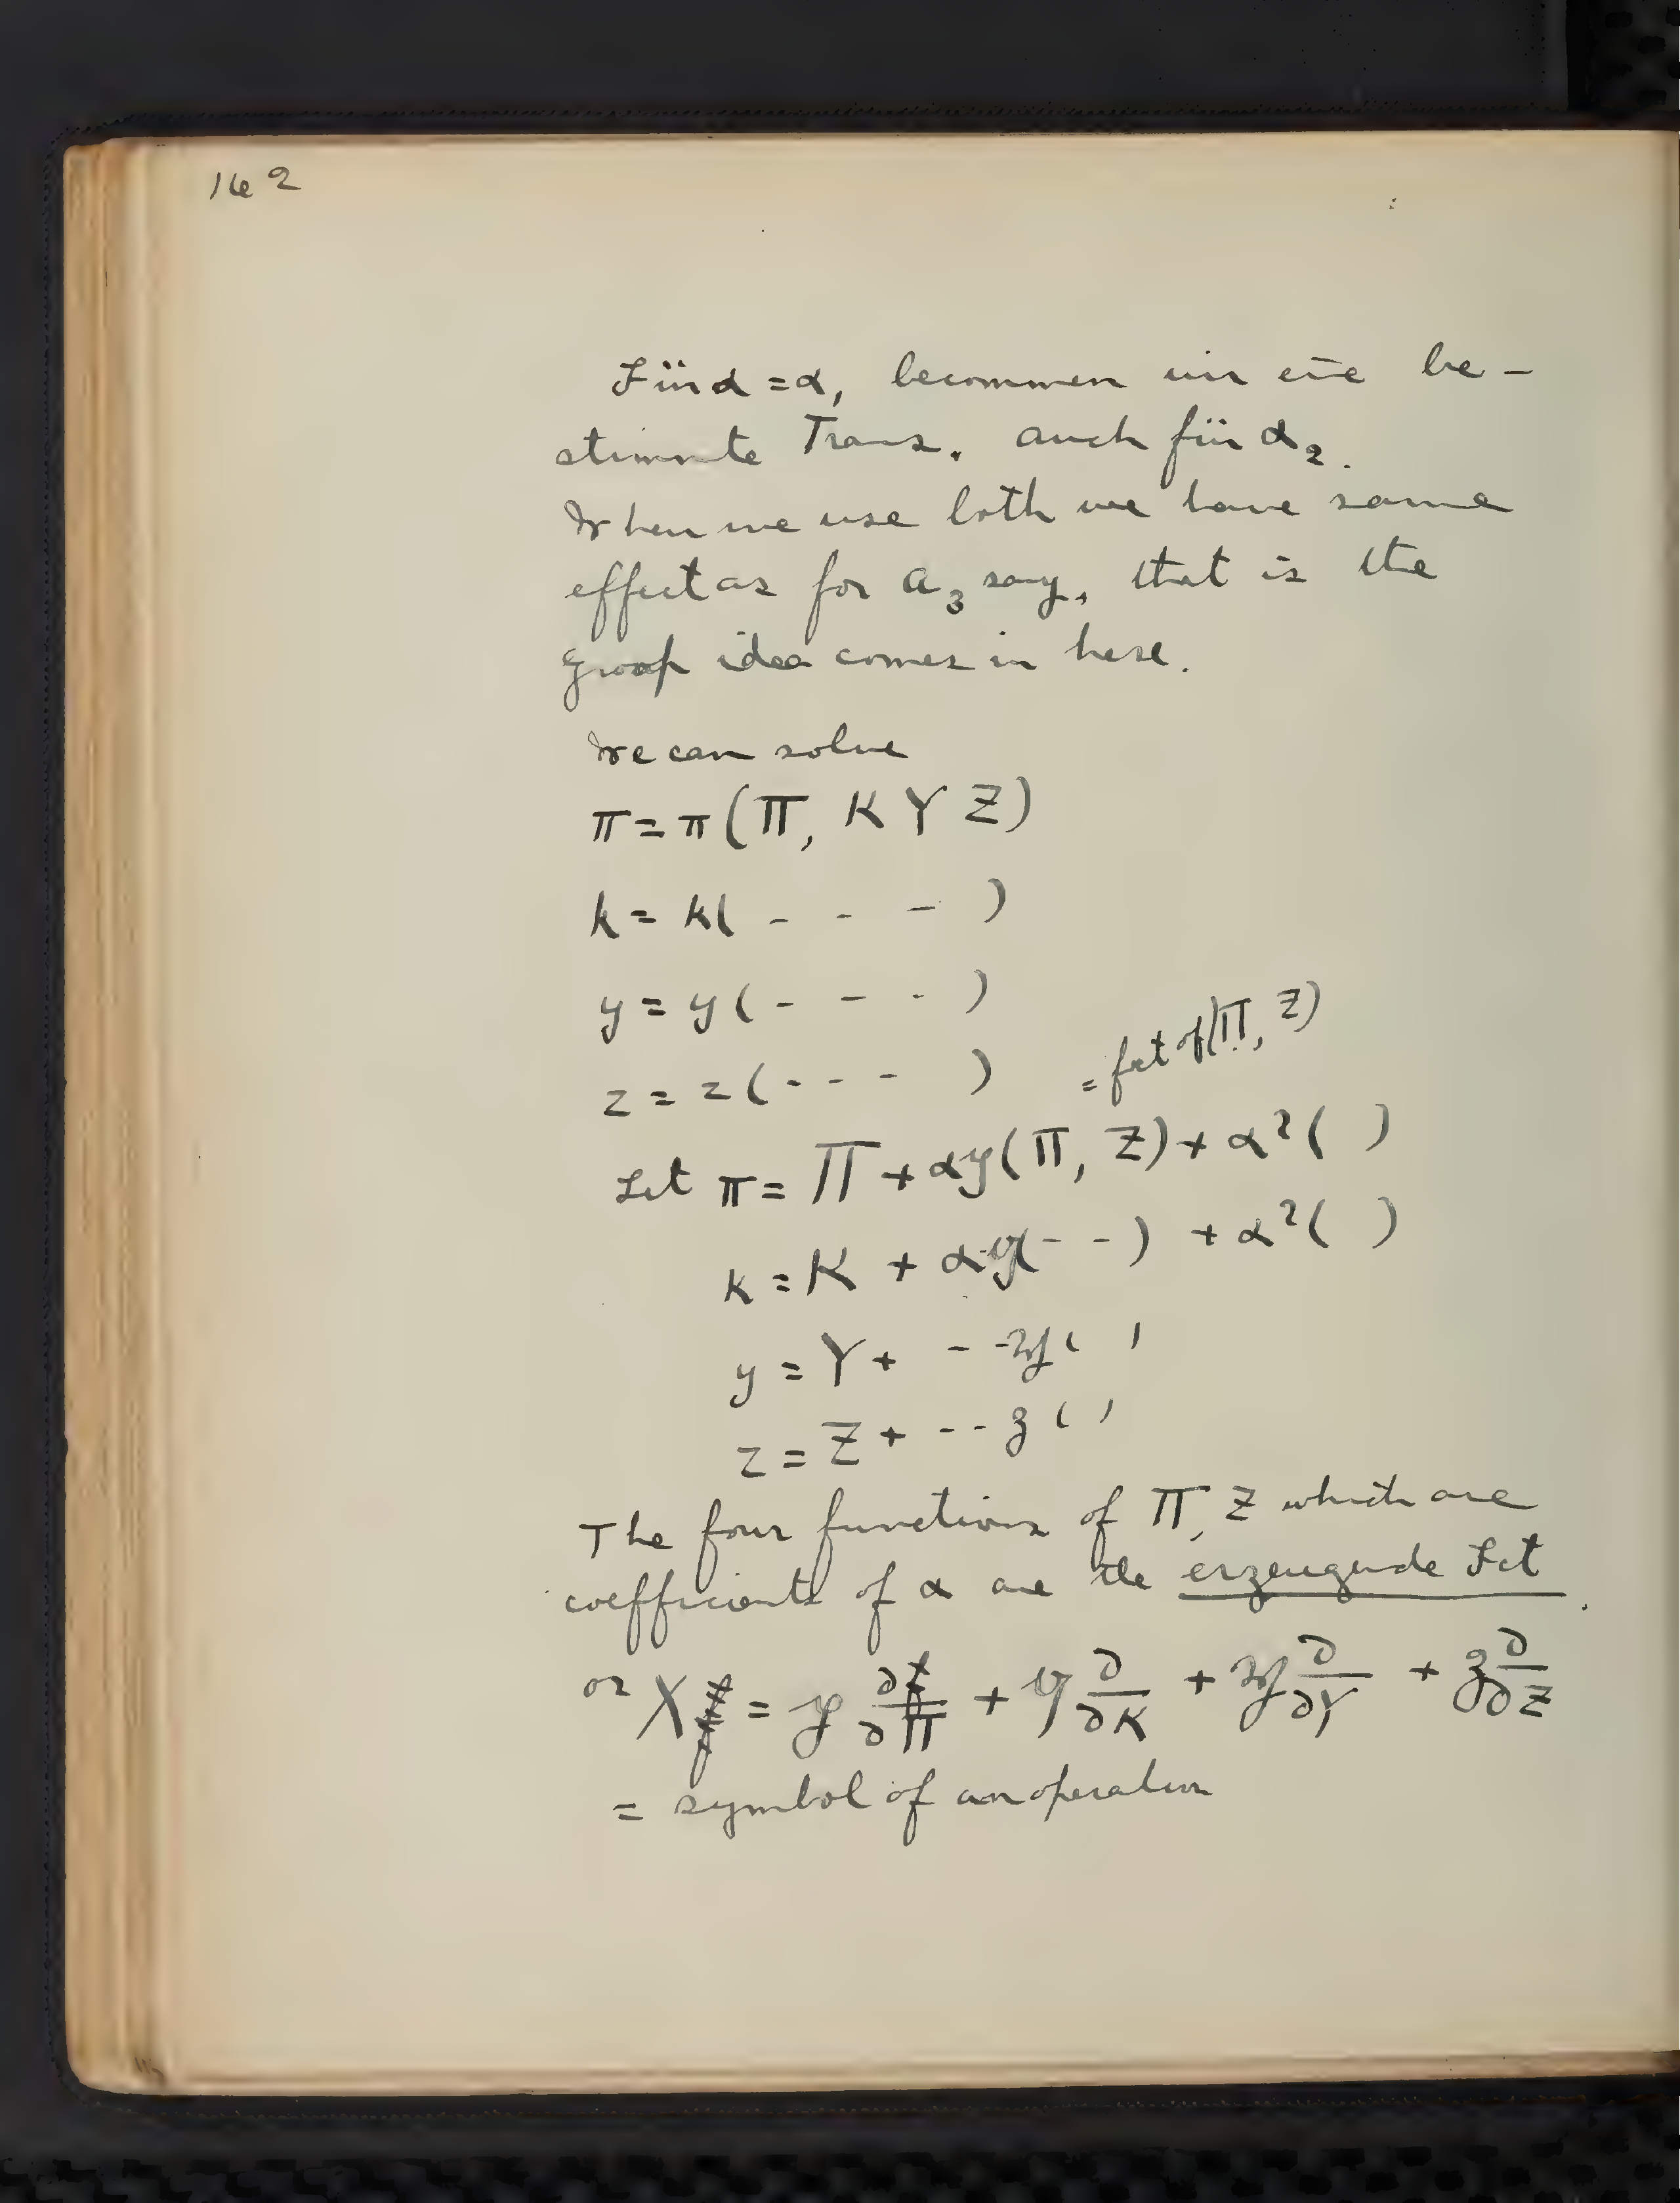 162
Für α = α, becommen wir eīe be-
stimmte Trans. auch für α₂.
When we use both we have same
effect as for a₃ say, that is the
group idea comes in here.
We can solve
π = π (Π, K Y Z)
k = k( - - - )
y = y( - - - )
z = z( - - - ) = fct of (Π, Z)
Let π = Π + αy(Π, Z) + α²( )
k = K + αy( - - ) + α²( )
y = Y + - - y( )
z = Z + - - z( )
The four functions of Π, Z which are
coefficients of α are the erzeugende Fct.
or X = y ∂/∂Π + y ∂/∂K + y ∂/∂Y + z ∂/∂Z
= symbol of an operation